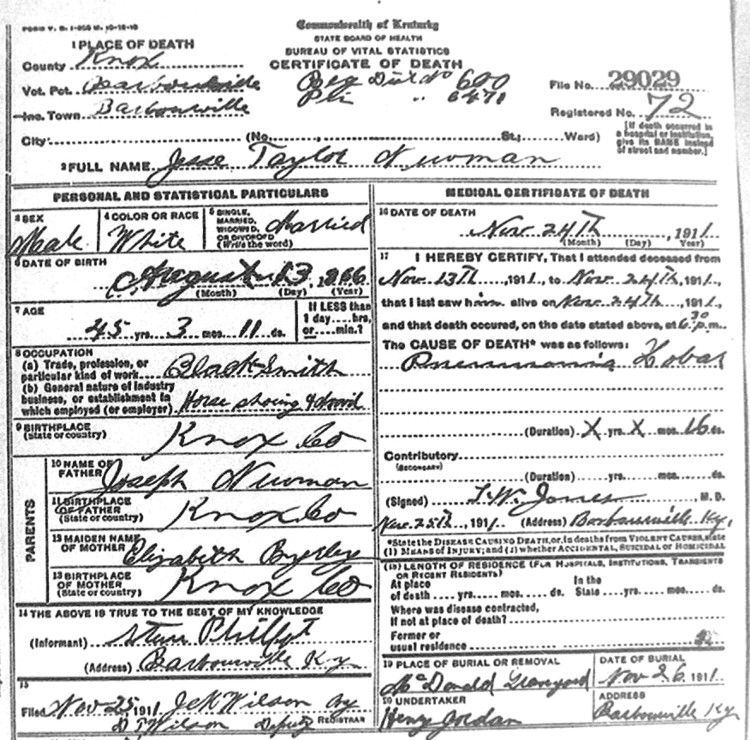 FORM V. S. 1-
Commonwealth of Kentucky
STATE BOARD OF HEALTH
BUREAU OF VITAL STATISTICS
CERTIFICATE OF DEATH
1 PLACE OF DEATH
County Knox
Vot. Pct. Barbourville
Inc. Town Barbourville
Reg Dist No 600
Pri " 6471
File No. 29029
Registered No. 72
City (No. , St.; Ward)
[If death occurred in a hospital or institution, give its NAME instead of street and number.]
2 FULL NAME Jesse Taylor Newman
PERSONAL AND STATISTICAL PARTICULARS
3 SEX Male
4 COLOR OR RACE White
5 SINGLE, MARRIED, WIDOWED, OR DIVORCED (Write the word) Married
6 DATE OF BIRTH
August 13, 1866
(Month) (Day) (Year)
7 AGE
45 yrs. 3 mos. 11 ds.
If LESS than 1 day....hrs. or....min.?
8 OCCUPATION
(a) Trade, profession, or particular kind of work Black Smith
(b) General nature of industry business, or establishment in which employed (or employer) Horse shoing &
9 BIRTHPLACE
(State or country) Knox Co
PARENTS
10 NAME OF FATHER Joseph Newman
11 BIRTHPLACE OF FATHER
(State or country) Knox Co
12 MAIDEN NAME OF MOTHER Elizabeth
13 BIRTHPLACE OF MOTHER
(State or country) Knox Co
14 THE ABOVE IS TRUE TO THE BEST OF MY KNOWLEDGE
(Informant) Philpot
(Address) Barbourville Ky
15
Filed Nov 25 1911 Wilson by
Wilson Deputy REGISTRAR
MEDICAL CERTIFICATE OF DEATH
16 DATE OF DEATH
Nov 24th, 1911
(Month) (Day) (Year)
17 I HEREBY CERTIFY, That I attended deceased from
Nov 13th, 1911, to Nov 24th, 1911,
that I last saw him alive on Nov 24th, 1911,
and that death occured, on the date stated above, at 6 30 p.m.
The CAUSE OF DEATH* was as follows:
Pneumonia Lobar
(Duration) X yrs. X mos. 16 ds.
Contributory
(SECONDARY)
(Duration) yrs. mos. ds.
(Signed) Jones M. D.
Nov. 25th, 1911 (Address) Barbourville Ky.
*State the DISEASE CAUSING DEATH, or, in deaths from VIOLENT CAUSES, state
(1) MEANS OF INJURY; and (2) whether ACCIDENTAL, SUICIDAL or HOMICIDAL
(18) LENGTH OF RESIDENCE (FOR HOSPITALS, INSTITUTIONS, TRANSIENTS
OR RECENT RESIDENTS)
At place of death yrs. mos. ds. In the State yrs. mos. ds.
Where was disease contracted,
If not at place of death?
Former or
usual residence
19 PLACE OF BURIAL OR REMOVAL
McDonald Graveyard
DATE OF BURIAL
Nov 26 1911
20 UNDERTAKER
Henry Jordan
ADDRESS
Barbourville Ky